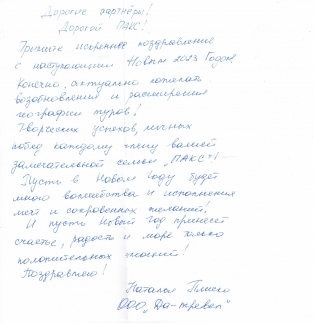 Дорогие партнёры!
Дорогой ПАКС!
Примите искренние поздравления
с наступающим Новым 2023 Годом.
Конечно, актуально пожелать
возобновления и расширения
географии туров!
Творческих успехов, личных
побед каждому члену вашей
замечательной семьи „ПАКС"!
Пусть в Новом году будет
много волшебства и исполнения
мечт и сокровенных желаний!
И пусть Новый год принесёт
счастье, радость и море только
положительных эмоций!
Поздравляю!
Наталья
ООО „Да-тревел"